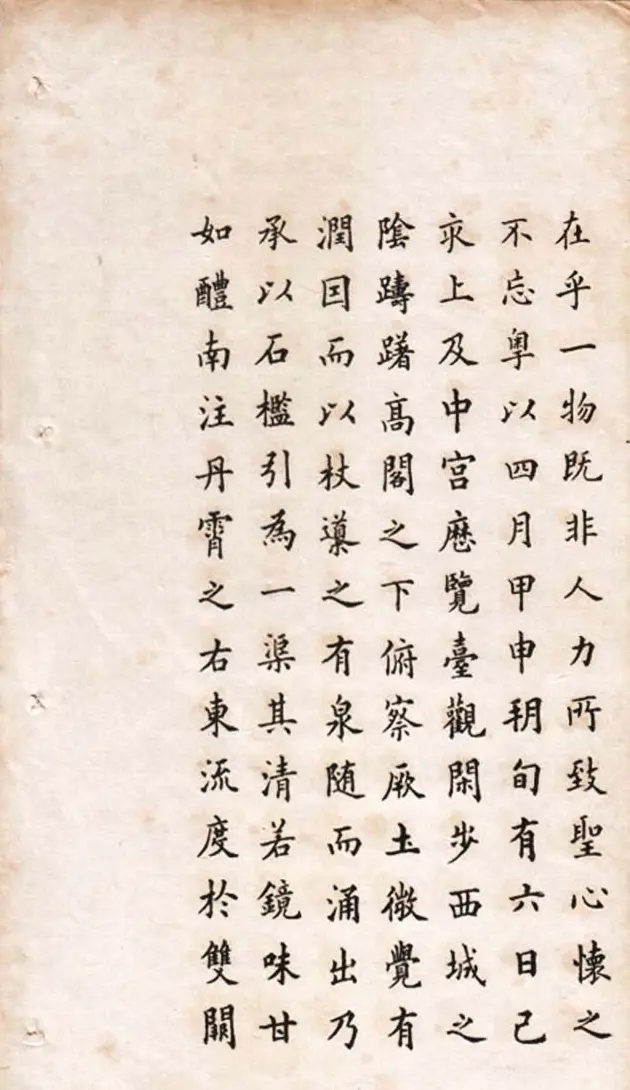 在乎一物既非人力所致聖心懷之
不忘粤以四月甲申朔旬有六日己
亥上及中宮歷覽臺觀閑步西城之
陰躊躇高閣之下俯察厥土微覺有
潤因而以杖導之有泉随而涌出乃
承以石檻引為一渠其清若鏡味甘
如醴南注丹霄之右東流度於雙闕